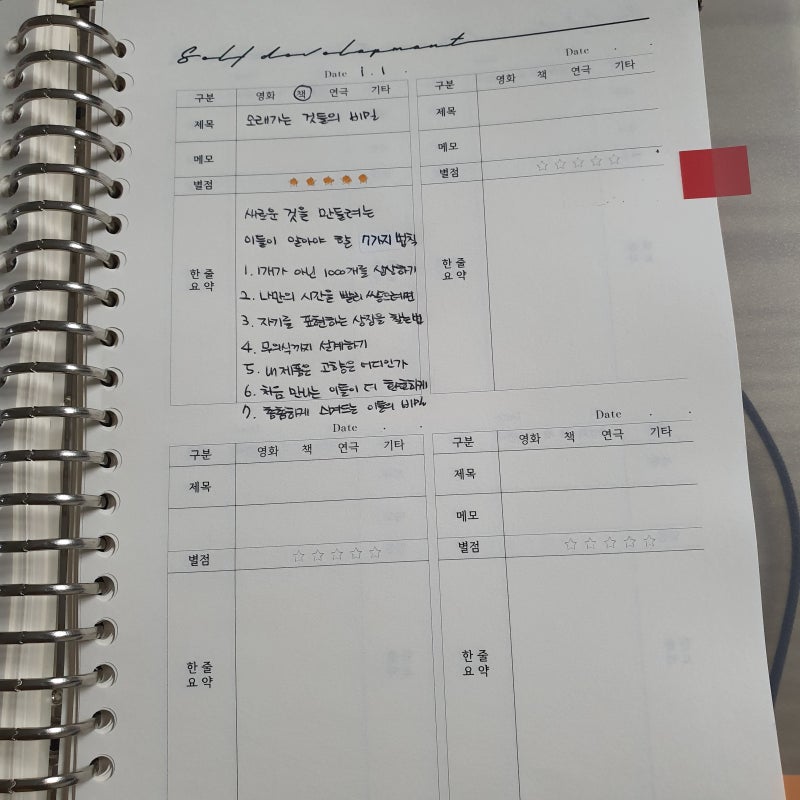 Self development
Date 1 . 1 .
구분 영화 책 연극 기타
제목 오래가는 것들의 비밀
메모
별점
한 줄
요약
새로운 것을 만들려는
이들이 알아야 할 7가지 법칙
1. 1개가 아닌 1000개를 상상하기
2. 나만의 시간을 빨리 쌓으려면
3. 자기를 표현하는 상징을 찾는법
4. 무의식까지 설계하기
5. 내 제품은 고향은 어디인가
6. 처음 만나는 이들이 더 하게
7. 촘촘하게 스며드는 이들의 비밀
Date . .
구분 영화 책 연극 기타
제목
메모
별점 ☆☆☆☆☆
한 줄
요약
Date . .
구분 영화 책 연극 기타
제목
별점 ☆☆☆☆☆
한 줄
요약
Date . .
구분 영화 책 연극 기타
제목
메모
별점 ☆☆☆☆☆
한 줄
요약